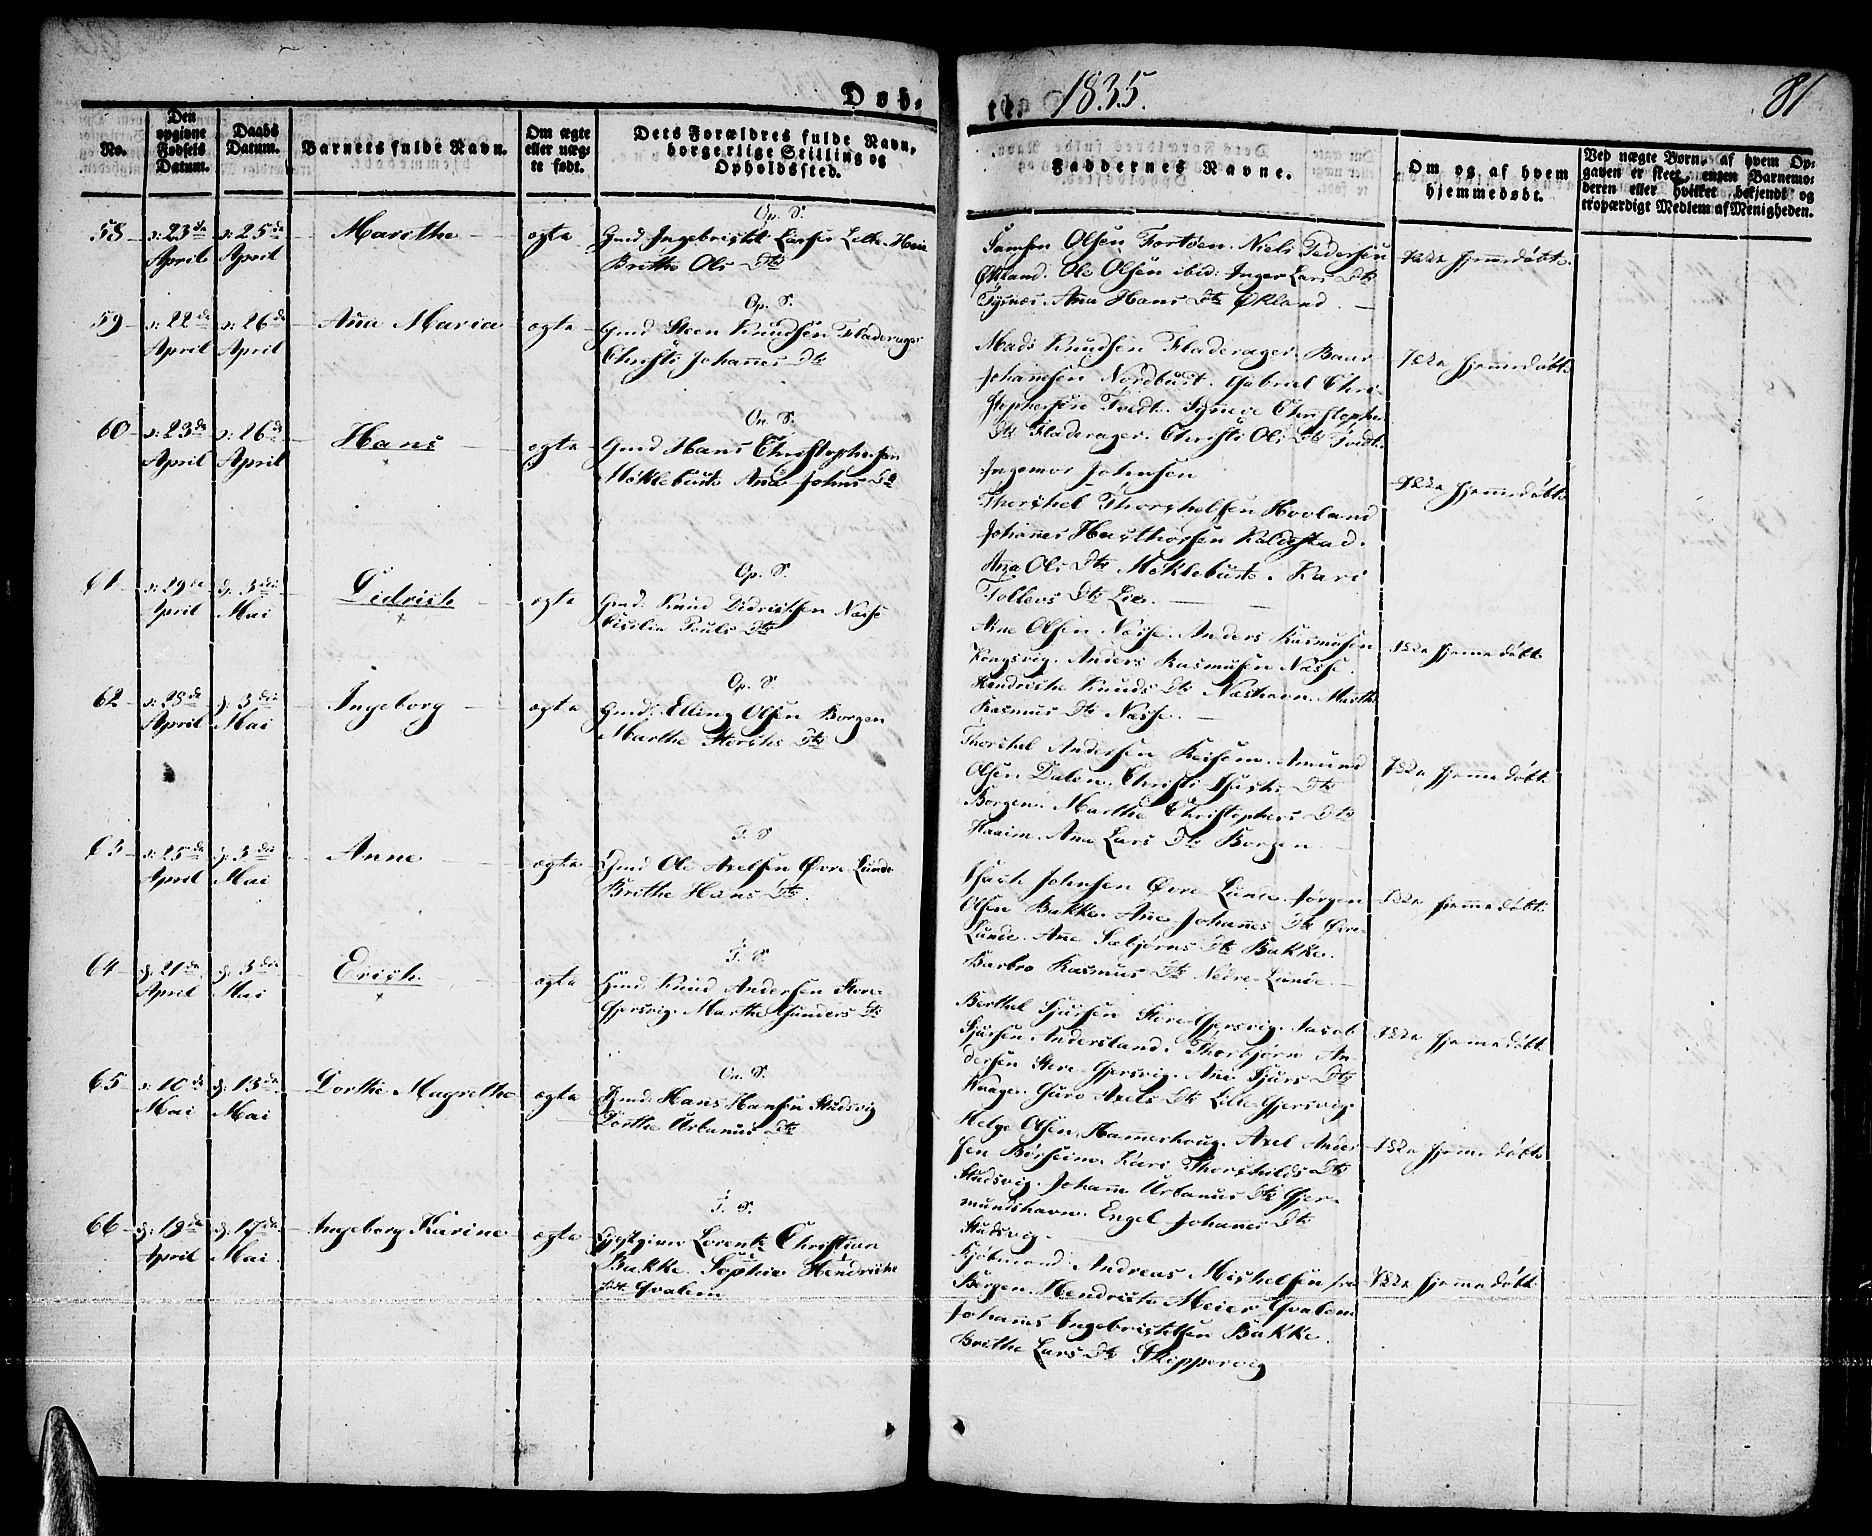 Døb-
te. 1835.
81
No.
Den opgivne Fødsels Datum.
Daabs Datum.
Barnets fulde Navn.
Om ægte eller uægte født.
Dets Forældres fulde Navn, borgerlige Stilling og Opholdssted.
Faddernes Navne.
Om og af hvem hjemmedøbt.
Ved uægte Børn, af hvem Opgaven er skeet, enten Barnemoderen eller hvilket bekjendt og troværdigt Medlem af Menigheden.
58
23de April
25de April
Marithe
ægte
Op. S.
Gmd Ingebrigt Larsen
Brithe Ols Dtr
Samson Olsen Tortsen. Niels Pedersen
Økland. Ole Olsen ibid: Inger Lars Dtr
Tysnæs. Ana Hans Dtr Økland.
ikke hjemmedøbt.
59
22de April
26de April
Ana Maria
ægte
Op. S.
Gmd. Steen Knudsen Fladerager
Christi Johannes Dtr
Mads Knudsen Fladerager. Baar
Johannesen Nordbust. Gabriel Chri-
stophersen Tvedt. Synneve Christopher
Dtr Fladerager. Christi Ols Dtr Tvedt.
ikke hjemmedøbt
60
23de April
26de April
Hans
ægte
On. S.
Gmd Hans Christophersen
Møklebust. Ana Johns Dtr
Ingemor Johnsen
Thorchel Thorchelsen Hovland
Johannes Hallthorsen Koldestad.
Ana Ols Dtr Møklebust. Kari
Tollevs Dtr Lie.
ikke hjemmedøbt
61
29de April
3die Mai
Didrich
ægte
Op. S.
Gmd. Knud Didrichsen Næsse
Cicilia Pouls Dtr
Arne Olsen Næsse. Anders Rasmusen
Kongsvig. Anders Rasmusen Næsse.
Hendriche Knuds Dtr Næshavn. Marthe
Rasmus Dtr Næsse.
ikke hjemmedøbt
62
28de April
3die Mai
Ingeborg
ægte
Op. S.
Gmd. Elling Olsen Borgen
Marthe Dtr
Thorchel Andersen. Amund
Olsen Dalen. Christi Dtr
Borgen. Marthe Christophers Dtr
Haaim. Ana Lars Dtr Borgen.
ikke hjemmedøbt
63
25de April
3die Mai
Anne
ægte
T. S.
Gmd Ole Axelsen Øvre Lunde
Brithe Hans Dtr.
Johnsen Øvre Lunde. Jørgen
Olsen Bakke. Ane Johannes Dtr Øvre
Lunde. Ane Sæbjørns Dtr Bakke.
Barbro Rasmus Dtr Nedre Lunde.
ikke hjemmedøbt
64
21de April
3die Mai
Erich
ægte
T. S.
Gmd. Knud Andersen Store
Gjersvig. Marthe Gunders Dtr
Berthel Sjursen Store Gjersvig. Jacob
Sjursen Andersland. Thorbjørn An-
dersen Store Gjersvig. Ane Sjurs Dtr
Kaager. Guro Axels Dtr Lille Gjersvig.
ikke hjemmedøbt
65
10de Mai
13de Mai
Dorthe Magrethe
ægte
On. S.
Gmd. Hans Hansen Studsvig
Dorthe Urbanus Dtr
Helge Olsen Hammerhoug. Axel Ander-
sen Børseim. Kari Thorchilds Dtr
Studsvig. Johann Urbanus Dtr Gjer-
mundshavn. Engel Johannes Dtr
Studsvig.
ikke hjemmedøbt
66
19de April
17de Mai
Ingeborg Karine
ægte
T. S.
Gjestgiver Lorentz Christian
Bakke. Sophia Hendriche
født Gvalem
Kjøbmand Andreas Michelsen fra
Bergen. Hendriche Meier Gvalem
Johannes Ingebrigtsen Bakke.
Brithe Lars Dtr Skippervig
ikke hjemmedøbt